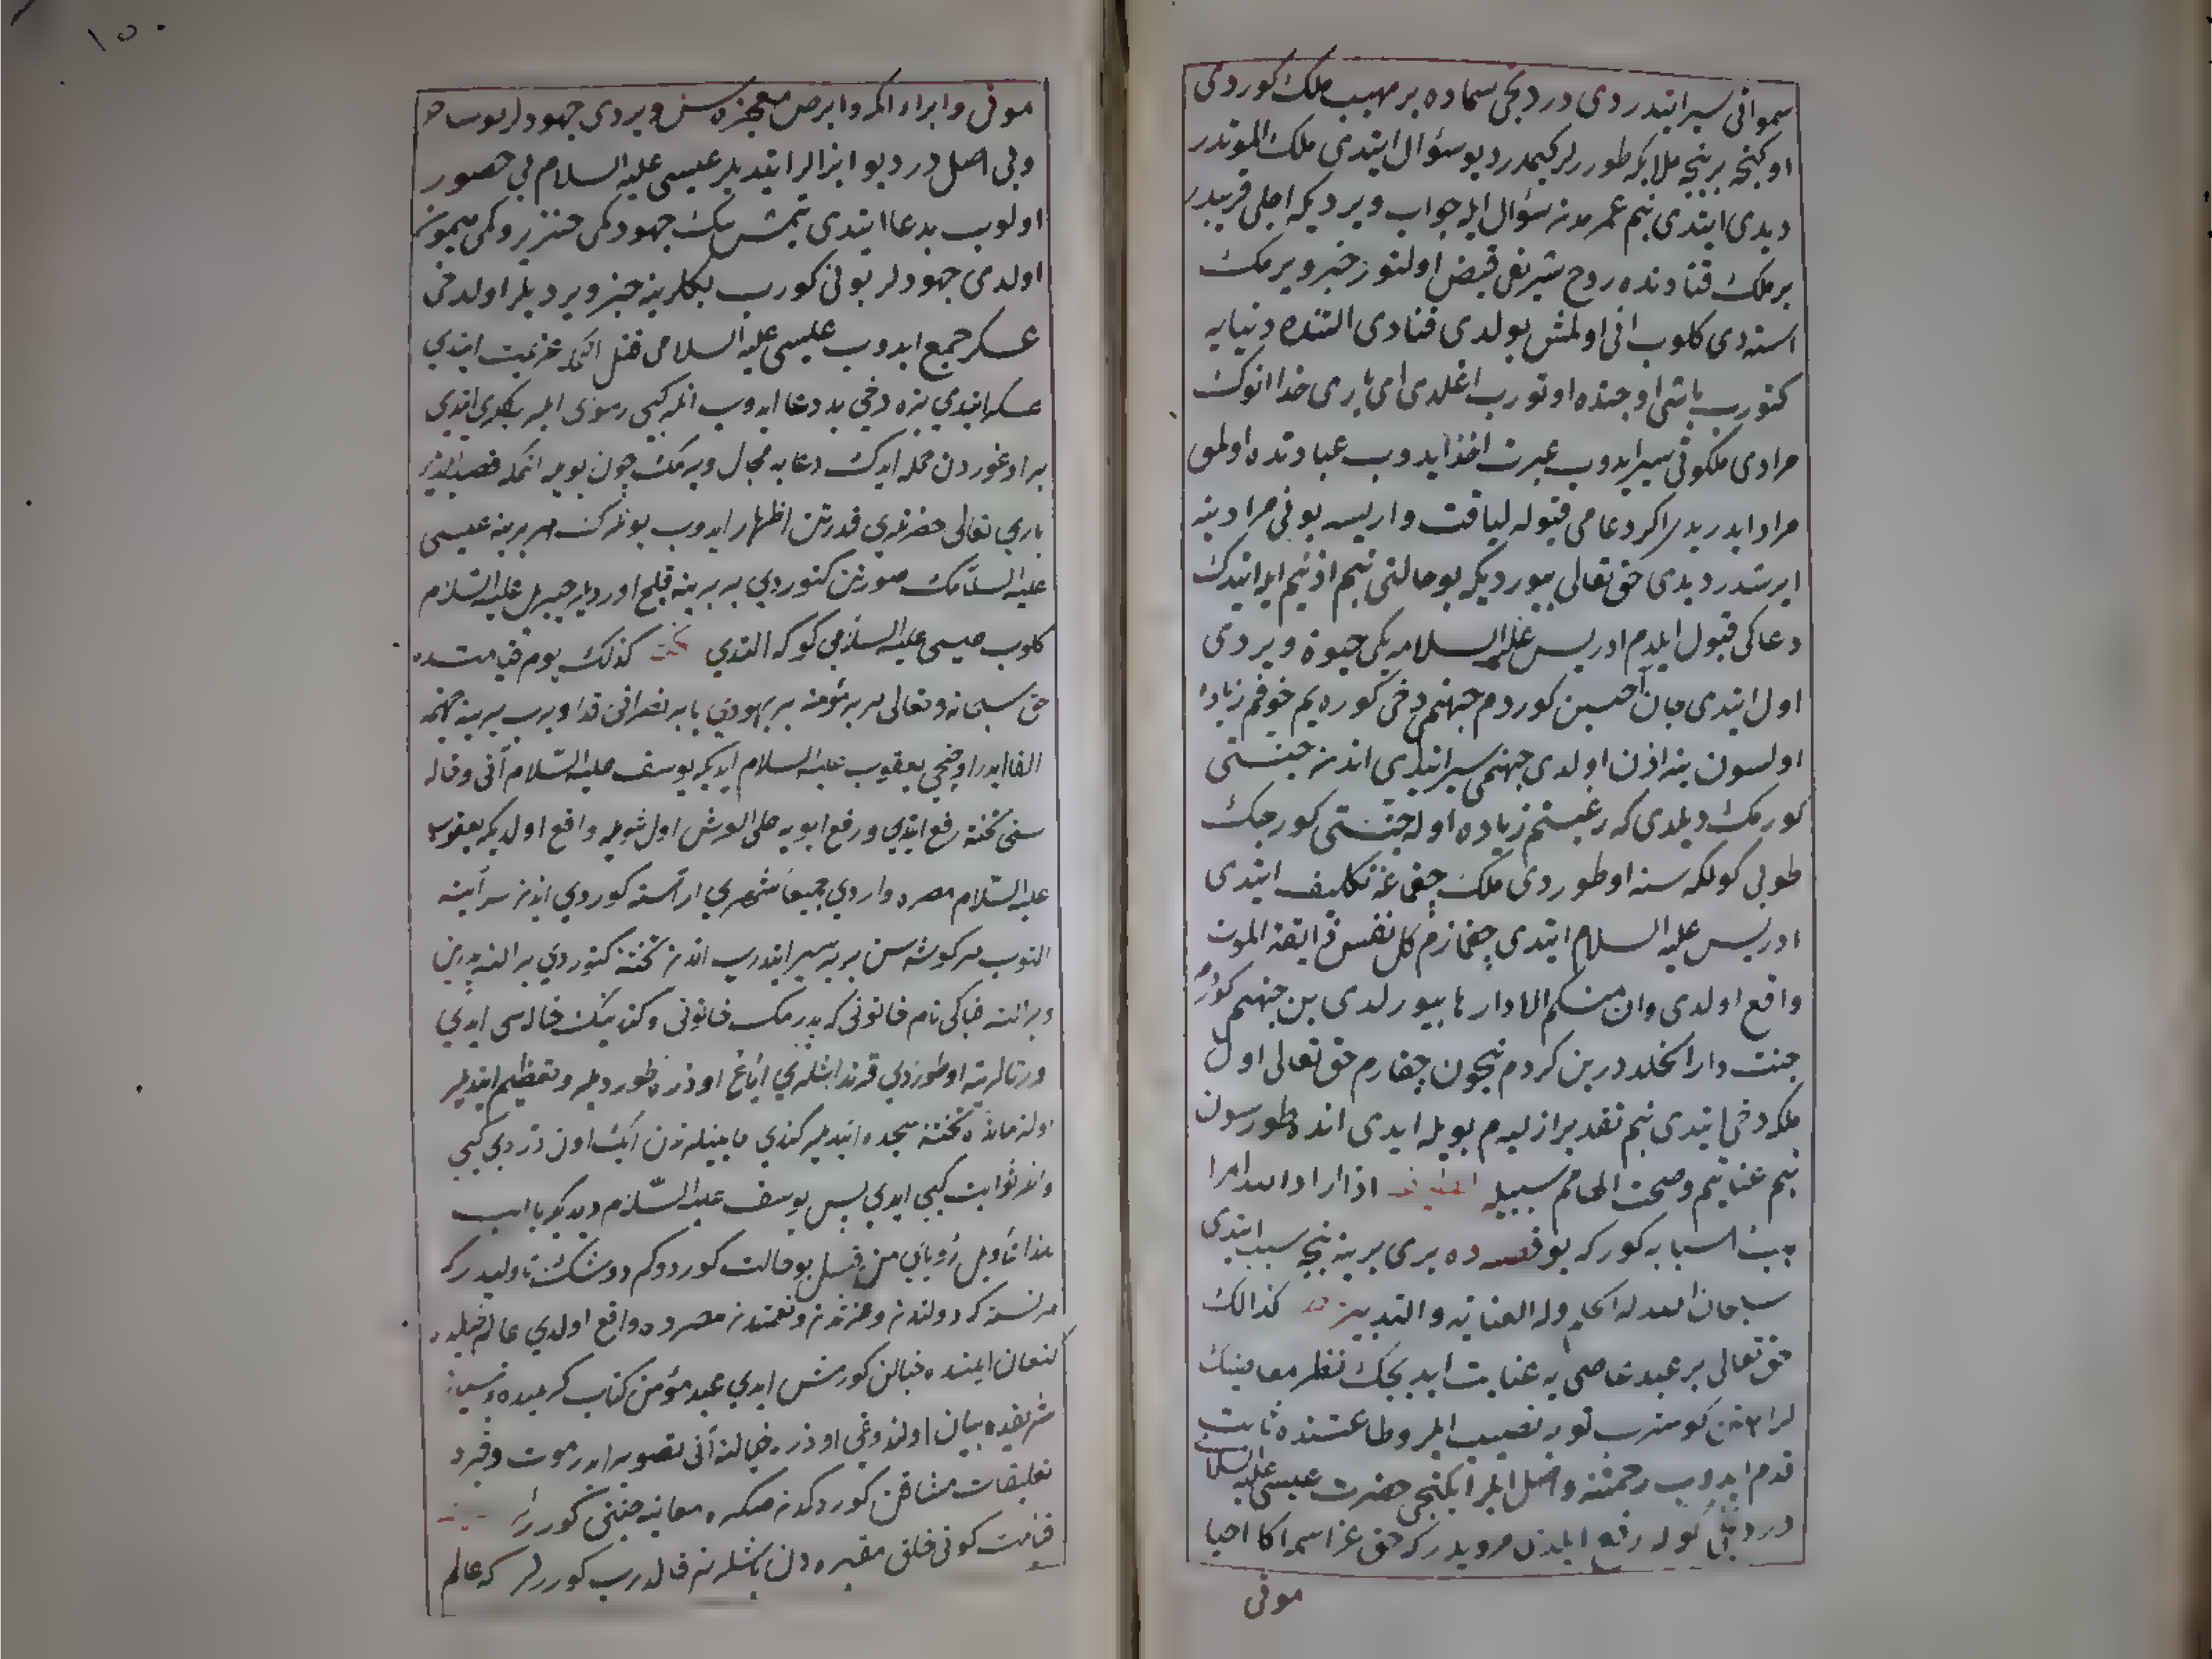 سمواتی سیر ایتدردی دردنجی سماده بر مهیب ملک کوردی
اوکنجه بر نیجه ملائکه طوررلر کیمدر دیو سؤال ایتدی ملک الموتدر
دیدی ایتدی بنم عمرمدن سؤال ایله جواب ویردیکه اجلی قریبدر
بر ملک قنادنده روح شریفی قبض اولنور خبر ویرمک
استدی کلوب انی اولمش بولدی قنادی التنده دنیایه
کتورب باشی اوجنده اوتورب اغلدی ای باری خدا انوک
مرادی ملکوتی سیر ایدوب عبرت اخذ ایدوب عبادتده اولمق
مراد ایدر ایدی اکر دعامی قبوله لیاقت واریسه بونی مرادینه
ایرشدر دیدی حق تعالی بیوردیکه بو حالتی بنم اذنیم ایله ایتدک
دعاکی قبول ایلدم ادریس علیه السلامه یکی حیوة ویردی
اول ایتدی جان اچسین کوردم جهنم دخی کورهیم خوفم زیاده
اولسون ینه اذن اولدی جهنمی سیر ایتدی اندن جنتی
کورمک دیلدی که رغبتم زیاده اوله جنتی کورجک
طوبی کولکه سنه اوطوردی ملک چقمغه تکلیف ایتدی
ادریس علیه السلام ایتدی چقمازم کل نفس ذائقة الموت
واقع اولدی وان منکم الا واردها بیورلدی بن جهنم کوردم
جنت دار الخلددر بن کردم نیچون چقارم حق تعالی اول
ملکه دخی ایتدی بنم تقدیر ازلیم بویله ایدی انده طورسون
بنم عنایتم وصحت الحاقم سببیله اذا اراد الله امرا
اسبابه کورکه بو قصه ده بری برینه نیجه سبب ایتدی
سبحان الله له الحکم وله العنایه والتدبیر کذالک
حق تعالی بر عبد عاصی یه عنایت ایدیجک نظر معاینک
کوستروب توبه نصیب ایلر وطاعتنده ثابت
قدم ایدوب رحمتنه واصل ایلر ایکنجی حضرت عیسی علیه السلام
دردنجی کوکه رفع ایلدی مرویدرکه حق عز اسمه اکا احیا
موتی
١٥٠
موتی وابراء اکمه وابرص معجزه سن ویردی جهودلر بو ساحر
وبی اصلدر دیو ایذالر ایتدیلر عیسی علیه السلام بی حضور
اولوب بددعا ایتدی یتمش بیک جهود کمی خنزیر وکمی میمون
اولدی جهودلر بونی کورب بکلرینه خبر ویردیلر اول دخی
عسکر جمع ایدوب عیسی علیه السلامی قتل ایتمکه عزیمت ایتدی
عسکر ایتدی بزه دخی بددعا ایدوب انلر کبی رسوای ایلر بکلری ایتدی
بر اوغوردن حمله ایدک دعایه مجال ویرمک چون بویله ایتمکه قصد ایتدیلر
باری تعالی حضرتلری قدرتن اظهار ایدوب بونلرک هر برینه عیسی
علیه السلامک صورتن کتوردی بر برینه قلیج اوردیلر جبریل علیه السلام
کلوب عیسی علیه السلامی کوکه التدی نکته کذلک یوم قیامتده
حق سبحانه وتعالی هر بر مؤمنه بر یهودی یا بر نصرانی فدا ویرب یرینه جهنمه
القا ایدر اوچنجی یعقوب علیه السلام ایدیکه یوسف علیه السلام آنی وخاله
سنی تختنه رفع ایتدی ورفع ابویه علی العرش اول شویله واقع اولدیکه یعقوب
علیه السلام مصره واردی جمیعا شهری اراسته کوردی اندن سراینه
التوب هر کوشه سن بر بر سیر ایتدرب اندن تختنه کتوردی بر النه پدرین
وبر النه نام خاتونی که پدرمک خاتونی وکندینک خاله سی ایدی
اوطوردی قرنداشلری ایاغ اوزره طوردیلر وتعظیم ایتدیلر
اول زمانده تختنه سجده ایتدیلر کندی مابینلرندن آیک اون دردی کبی
ثوابت کبی ایدی پس یوسف علیه السلام دیدیکه یا ابت
هذا تأویل رؤیای من قبل بو حالت کوردوکم دوشک تأویلیدرکه
هر نسنه که دولتدن وعزتدن ونعمتدن مصرده واقع اولدی عالم خیالده
کنعان ایلنده خیالن کورمش ایدی عبد مؤمن کتاب کریمده وسنت
شریفده بیان اولندوغی اوزره خیالنه آنی تصویر ایدر موت وقبرده
کوردکدن صکره معاینه جنتی کورر
قیامت کونی خلق مقبره دن باشلرین قالدرب کوررلر که عالم